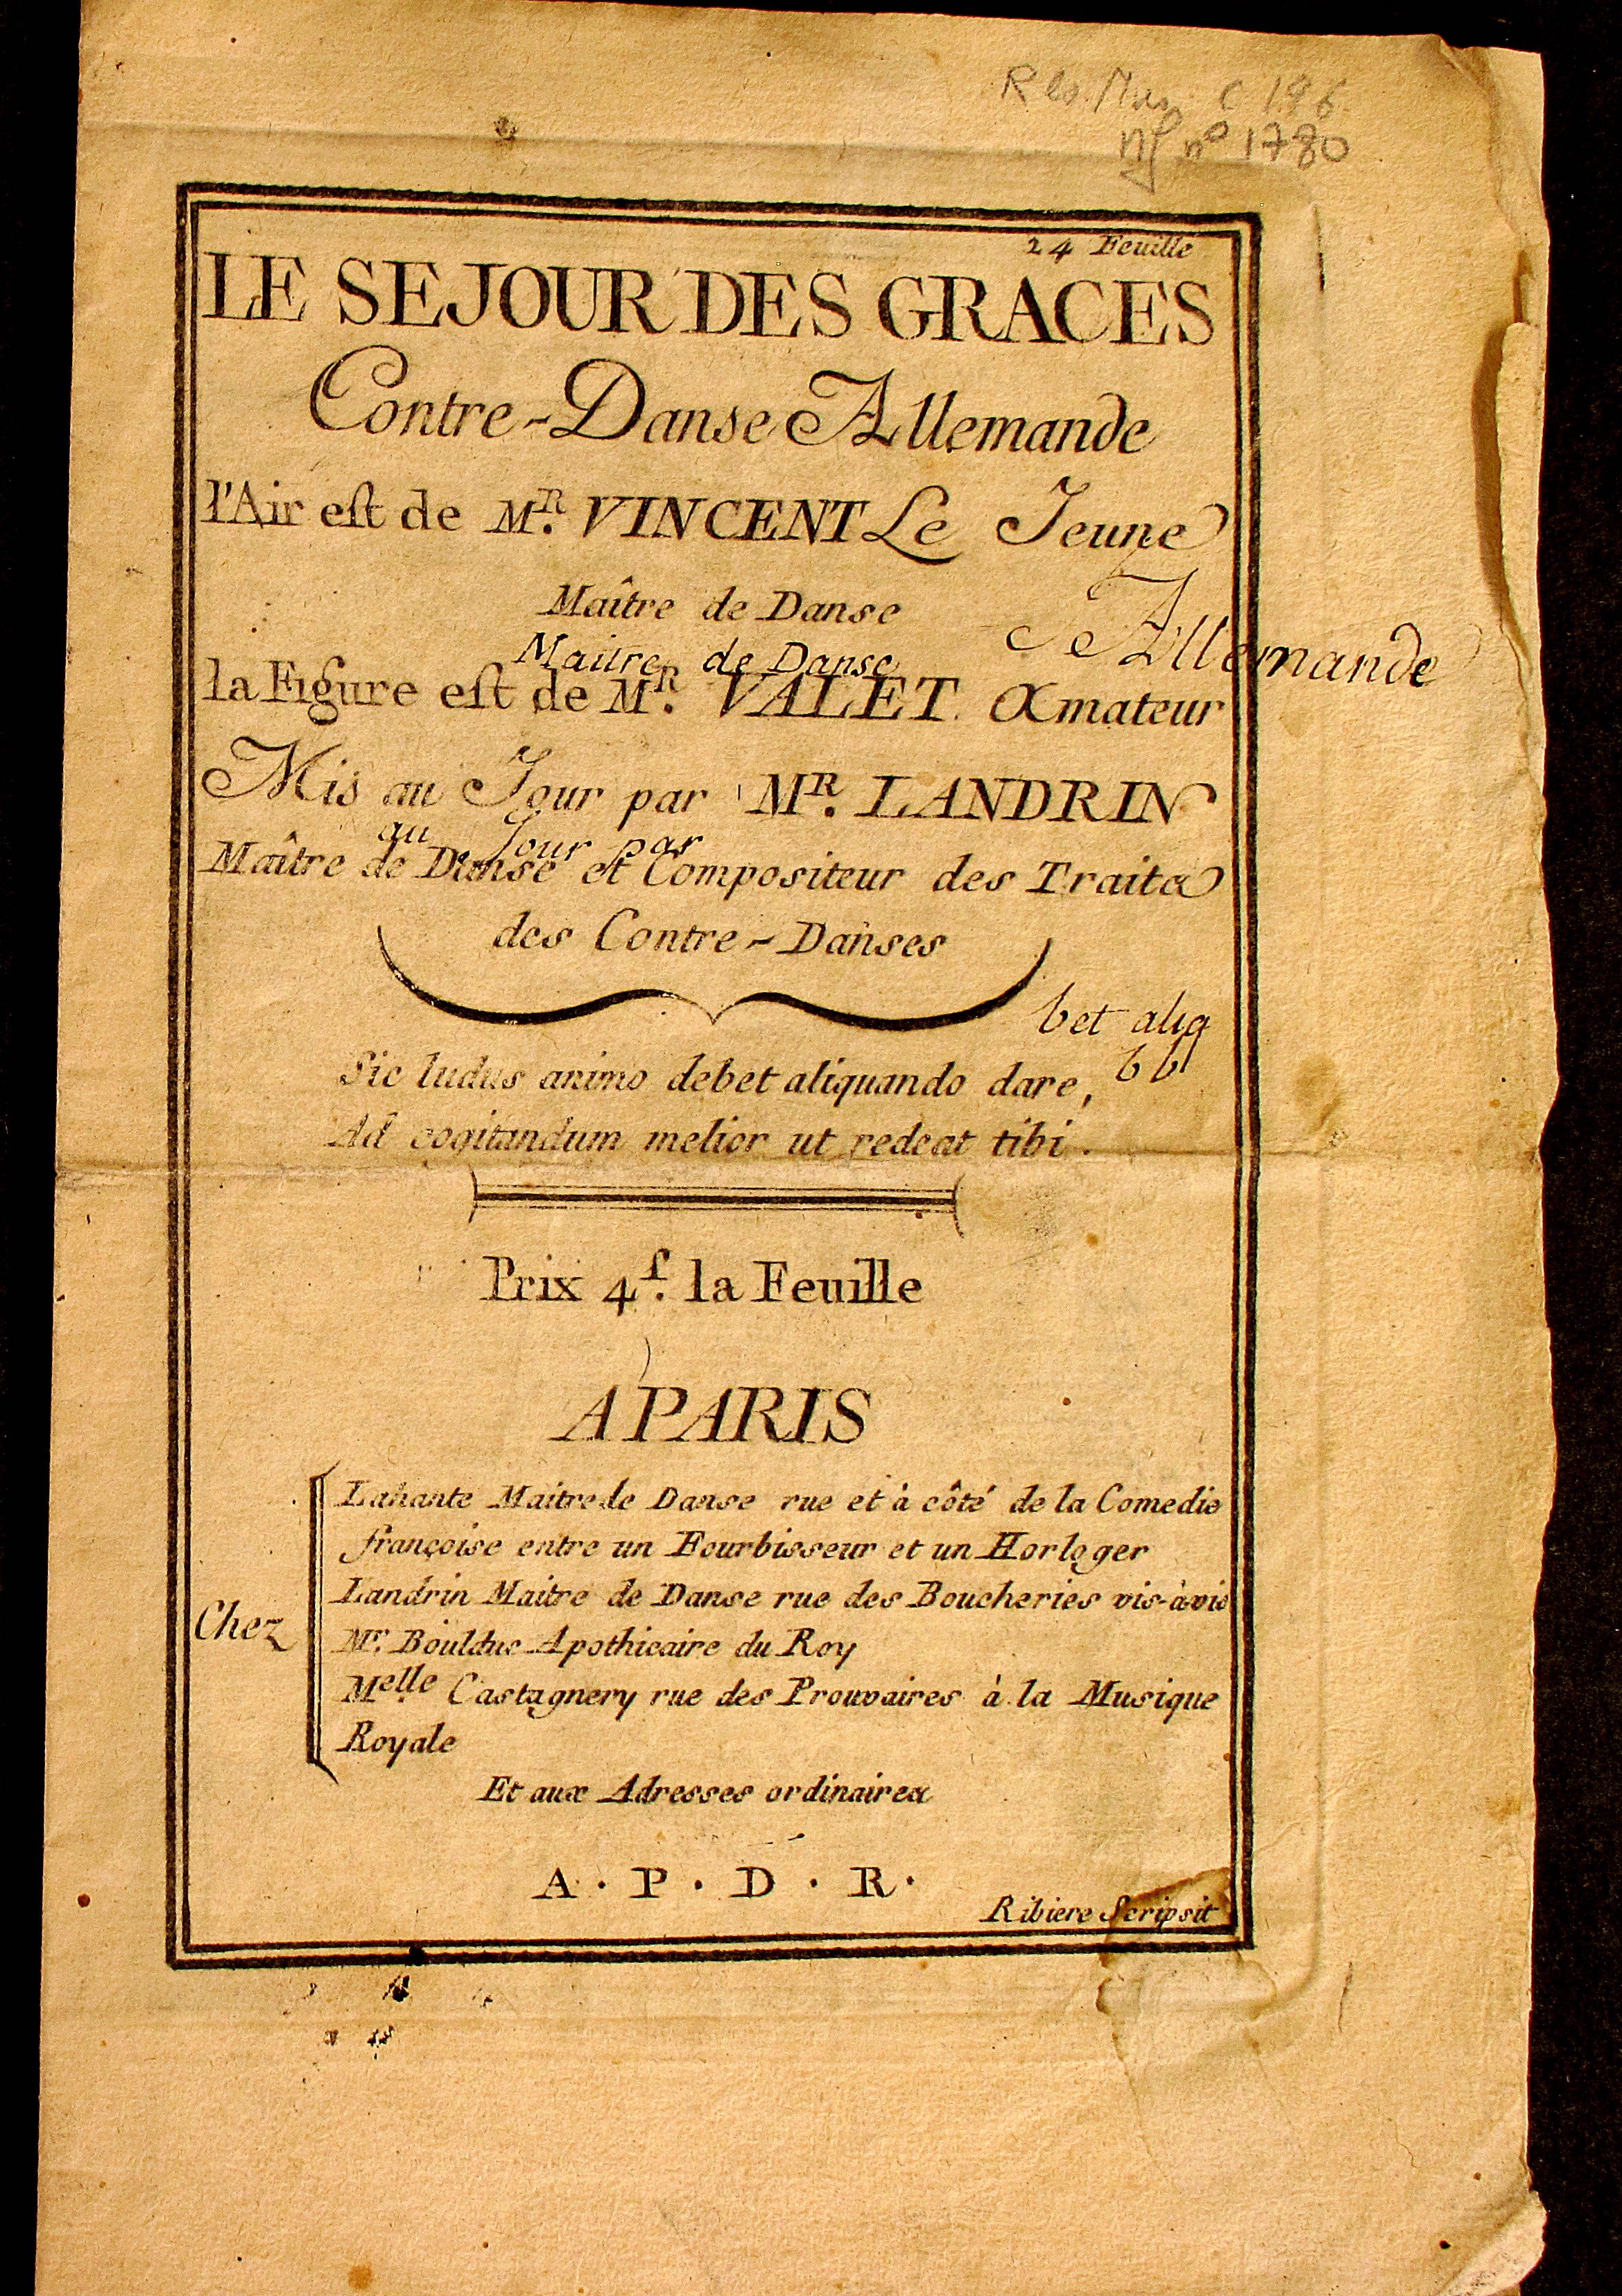 Res. Mus. C 196
nf no 1780
24 Feuille
LE SEJOUR DES GRACES
Contre-Danse Allemande
l'Air eſt de MR. VINCENT Le Jeune
Maître de Danse
Allemande
Maitre de Danse
la Figure eſt de MR. VALET Amateur
Mis au Jour par MR. LANDRIN
au Jour par
Maître de Danse et Compositeur des Traits
des Contre-Danses
bet aliq
Sic ludus animo debet aliquando dare,
bb
Ad cogitandum melior ut redeat tibi.
Prix 4ſ. la Feuille
A PARIS
Chez
Lahante Maitre de Danse rue et à côté de la Comedie
françoise entre un Fourbisseur et un Horloger
Landrin Maitre de Danse rue des Boucheries vis-àvis
Mr. Boulduc Apothicaire du Roy
Melle Castagnery rue des Prouvaires à la Musique
Royale
Et aux Adresses ordinaires
A. P. D. R.
Ribiere Scripsit